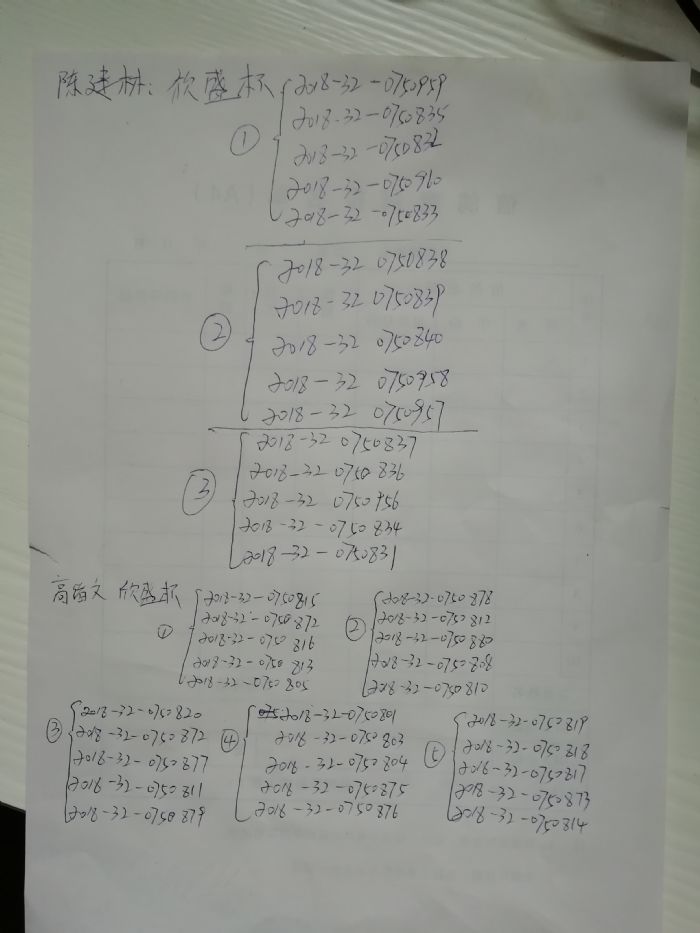 陈建林：欣盛杯
① 2018-32-0750959
2018-32-0750835
2018-32-0750832
2018-32-0750960
2018-32-0750833
② 2018-32 0750838
2018-32 0750839
2018-32 0750840
2018-32 0750958
2018-32 0750957
③ 2018-32 0750837
2018-32 0750836
2018-32 0750956
2018-32-0750834
2018-32-0750831
高 文 欣盛杯
① 2018-32-0750815
2018-32-0750872
2018-32-0750816
2018-32-0750813
2018-32-0750805
② 2018-32-0750878
2018-32-0750812
2018-32-0750880
2018-32-0750808
2018-32-0750810
③ 2018-32-0750820
2018-32-0750872
2018-32-0750877
2018-32-0750811
2018-32-0750879
④ 2018-32-0750801
2018-32-0750803
2018-32-0750804
2018-32-0750875
2018-32-0750876
⑤ 2018-32-0750819
2018-32-0750818
2018-32-0750817
2018-32-0750873
2018-32-0750814